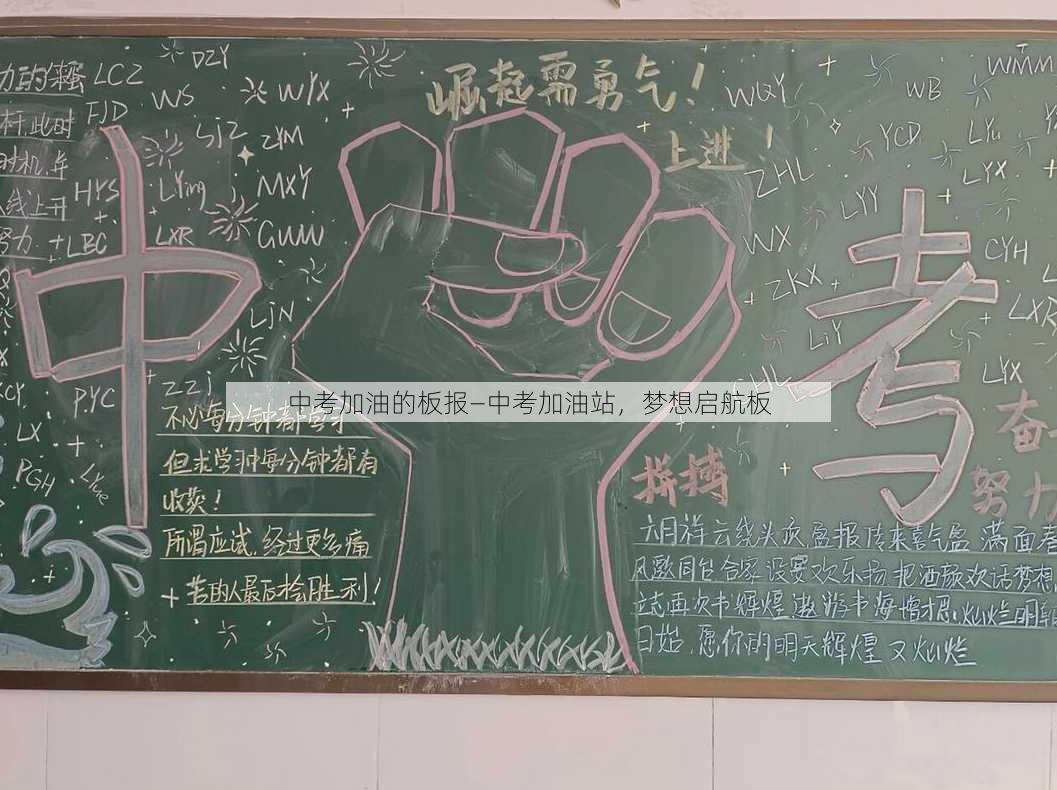 崛起需勇气！
上进！
中
考
中考加油的板报—中考加油站，梦想启航板
LCZ
DZY
FJD
WS
WYX
SJZ
ZYM
HYS
LYing
MXY
LBC
LXR
GUW
LJN
PYC
ZZJ
LX
PGH
WQY
WB
WMM
YCD
LYu
ZHL
LYX
LYY
WX
CYH
ZKX
LXR
LiY
LYX
不必每分钟都学习
但求学习中每分钟都有
收获！
所谓应试，经过更多痛
苦的人最后会胜利！
拼搏
奋
努力
六月祥云线头欢，盈报传来喜气盈，满面春
风邀同比合家设宴欢乐扬，把酒颜欢话梦想
立志再次书辉煌，遨游书海增才思，灿烂明朝
日始，愿你的明天辉煌又灿烂